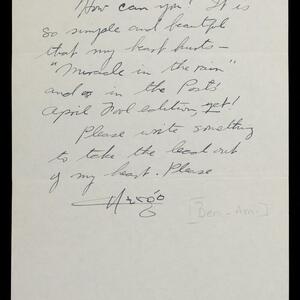 How can you! It is
so simple and beautiful
that my heart hurts —
"Miracle in the rain"
and in the Post's
April Fool edition, yet!
Please write something
to take the lead out
of my heart. Please
[Ben-Am.]